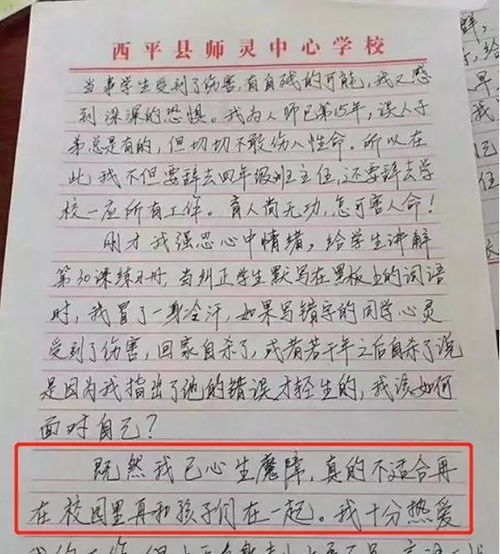 西平县师灵中心学校
当事学生受到了伤害,有自残的可能,我又感
到深深的恐惧。我为人师已第15年,误人子
弟总是有的,但切切不敢伤人性命。所以在
此我不但要辞去四年级班主任,还要辞去学
校一应所有工作。育人尚无功,怎可害人命!
刚才我强忍心中情绪,给学生讲解
第30课练习册,当纠正学生默写在黑板上的词语
时,我冒了一身冷汗,如果写错字的同学心灵
受到了伤害,回家自杀了,或者若干年之后自杀了说
是因为我指出了他的错误才轻生的,我该如何
面对自己?
既然我已心生魔障,真的不适合再
在校园里再和孩子们在一起。我十分热爱